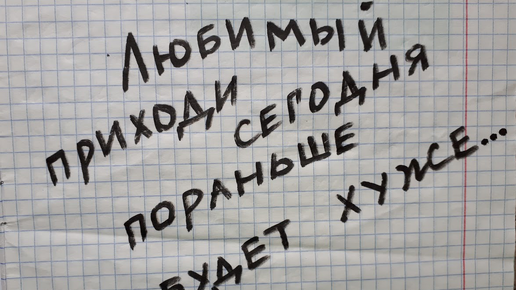 ЛЮБИМЫЙ
ПРИХОДИ СЕГОДНЯ
ПОРАНЬШЕ
БУДЕТ ХУЖЕ...